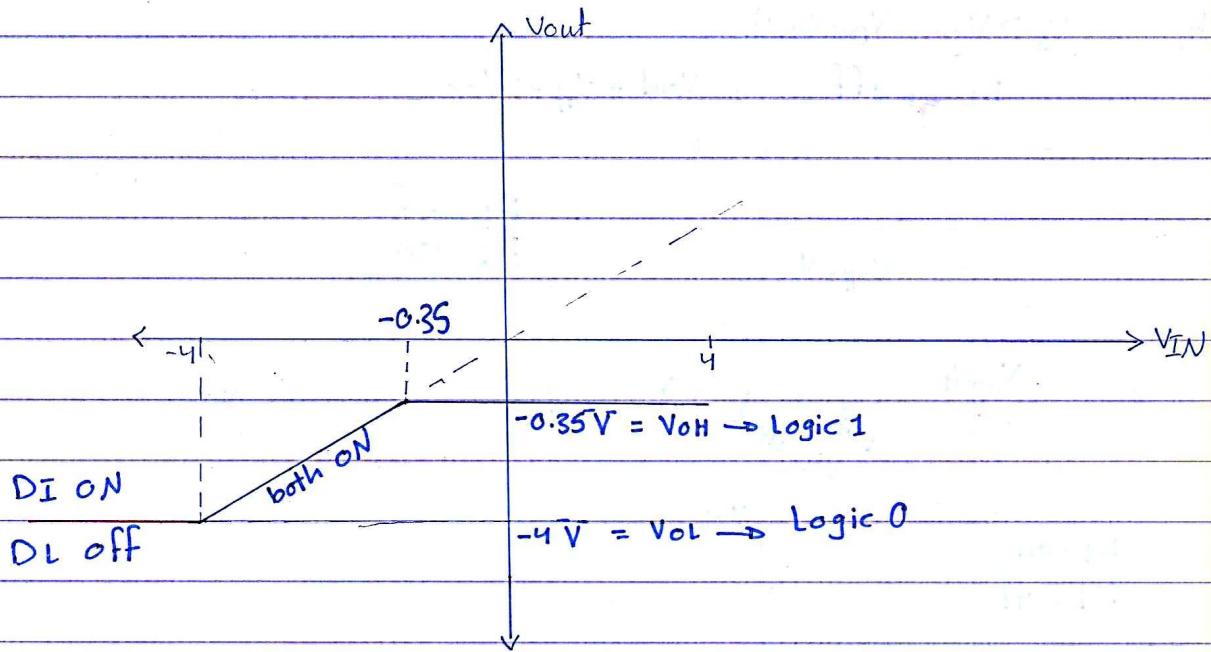 Vout
-0.35
-4
4
VIN
-0.35V = VOH → Logic 1
both ON
DI ON
-4V = VOL → Logic 0
DL off